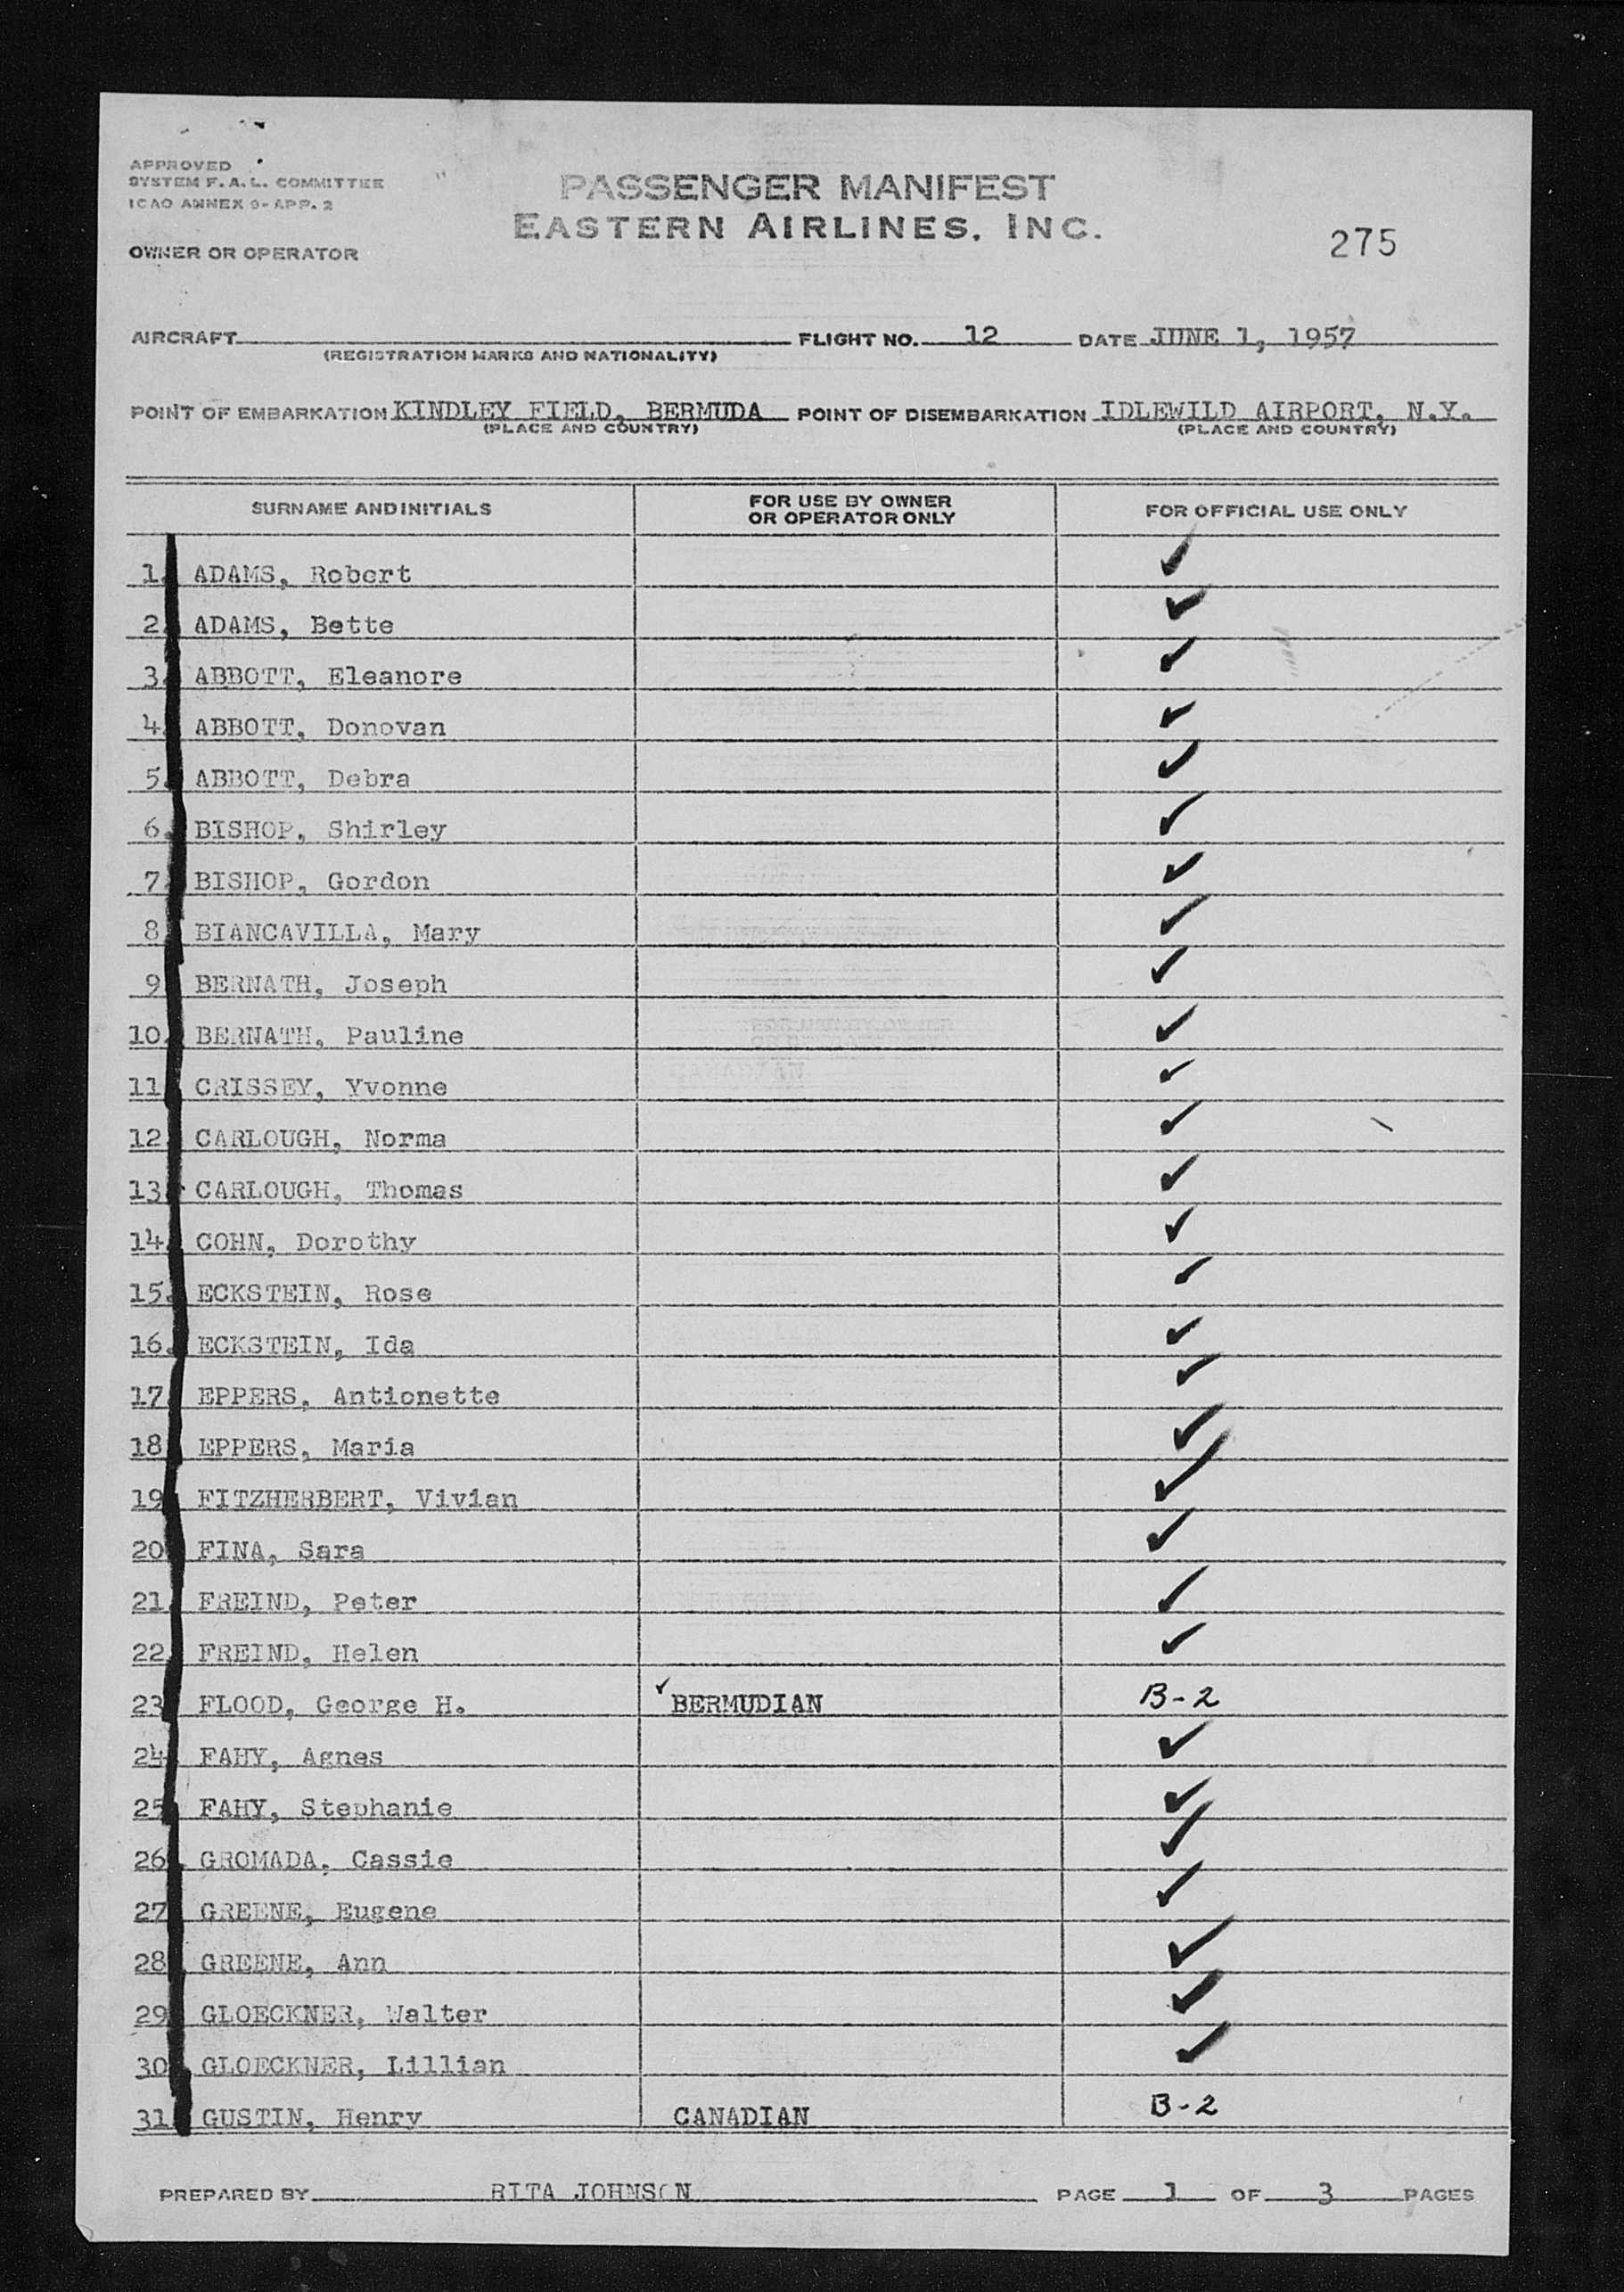 APPROVED
SYSTEM F.A.L. COMMITTEE
ICAO ANNEX 9-APP. 2
PASSENGER MANIFEST
EASTERN AIRLINES, INC.
275
OWNER OR OPERATOR
AIRCRAFT FLIGHT NO. 12 DATE JUNE 1, 1957
(REGISTRATION MARKS AND NATIONALITY)
POINT OF EMBARKATION KINDLEY FIELD, BERMUDA POINT OF DISEMBARKATION IDLEWILD AIRPORT, N.Y.
(PLACE AND COUNTRY) (PLACE AND COUNTRY)
SURNAME AND INITIALS FOR USE BY OWNER OR OPERATOR ONLY FOR OFFICIAL USE ONLY
1. ADAMS, Robert ✓
2. ADAMS, Bette ✓
3. ABBOTT, Eleanore ✓
4. ABBOTT, Donovan ✓
5. ABBOTT, Debra ✓
6. BISHOP, Shirley ✓
7. BISHOP, Gordon ✓
8. BIANCAVILLA, Mary ✓
9. BERNATH, Joseph ✓
10. BERNATH, Pauline ✓
11. CRISSEY, Yvonne ✓
12. CARLOUGH, Norma ✓
13. CARLOUGH, Thomas ✓
14. COHN, Dorothy ✓
15. ECKSTEIN, Rose ✓
16. ECKSTEIN, Ida ✓
17. EPPERS, Antionette ✓
18. EPPERS, Maria ✓
19. FITZHERBERT, Vivian ✓
20. FINA, Sara ✓
21. FREIND, Peter ✓
22. FREIND, Helen ✓
23. FLOOD, George H. ✓ BERMUDIAN B-2
24. FAHY, Agnes ✓
25. FAHY, Stephanie ✓
26. GROMADA, Cassie ✓
27. GREENE, Eugene ✓
28. GREENE, Ann ✓
29. GLOECKNER, Walter ✓
30. GLOECKNER, Lillian ✓
31. GUSTIN, Henry CANADIAN B-2
PREPARED BY RITA JOHNSON PAGE 1 OF 3 PAGES